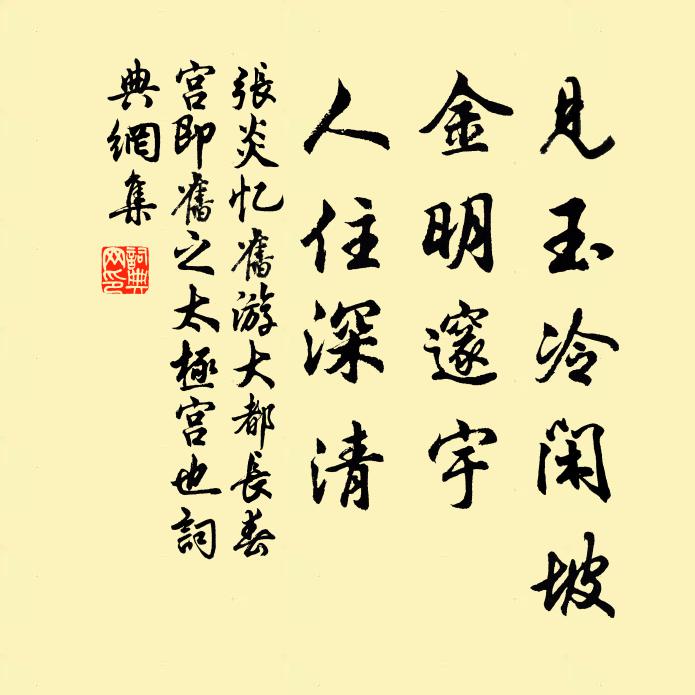 見玉冷閑坡
金明邃宇
人住深清
張炎忆舊游大都長春
宮即舊之太極宮也詞
典網集
詞典
网印